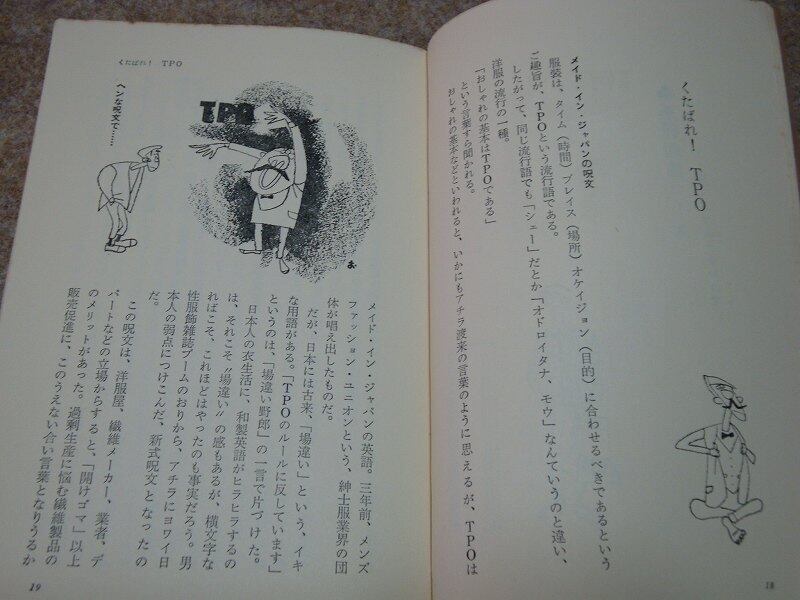 くたばれ! TPO
メイド・イン・ジャパンの呪文
服装は、タイム(時間)プレイス(場所)オケイジョン(目的)に合わせるべきであるという
ご趣旨が、TPOという流行語である。
したがって、同じ流行語でも「シェー」だとか「オドロイタナ、モウ」なんていうのと違い、
洋服の流行の一種。
「おしゃれの基本はTPOである」
という言葉すら聞かれる。
おしゃれの基本などといわれると、いかにもアチラ渡来の言葉のように思えるが、TPOは
18
くたばれ! TPO
TPO
ヘンな呪文で……
お
メイド・イン・ジャパンの英語。三年前、メンズ
ファッション・ユニオンという、紳士服業界の団
体が唱え出したものだ。
だが、日本には古来、「場違い」という、イキ
な用語がある。「TPOのルールに反しています」
というのは、「場違い野郎」の一言で片づけた。
日本人の衣生活に、和製英語がヒラヒラするの
は、それこそ〝場違い〟の感もあるが、横文字な
ればこそ、これほどはやったのも事実だろう。男
性服飾雑誌ブームのおりから、アチラにヨワイ日
本人の弱点につけこんだ、新式呪文となったの
だ。
この呪文は、洋服屋、繊維メーカー、業者、デ
パートなどの立場からすると、「開けゴマ」以上
のメリットがあった。過剰生産に悩む繊維製品の
販売促進に、このうえない合い言葉となりうるか
19